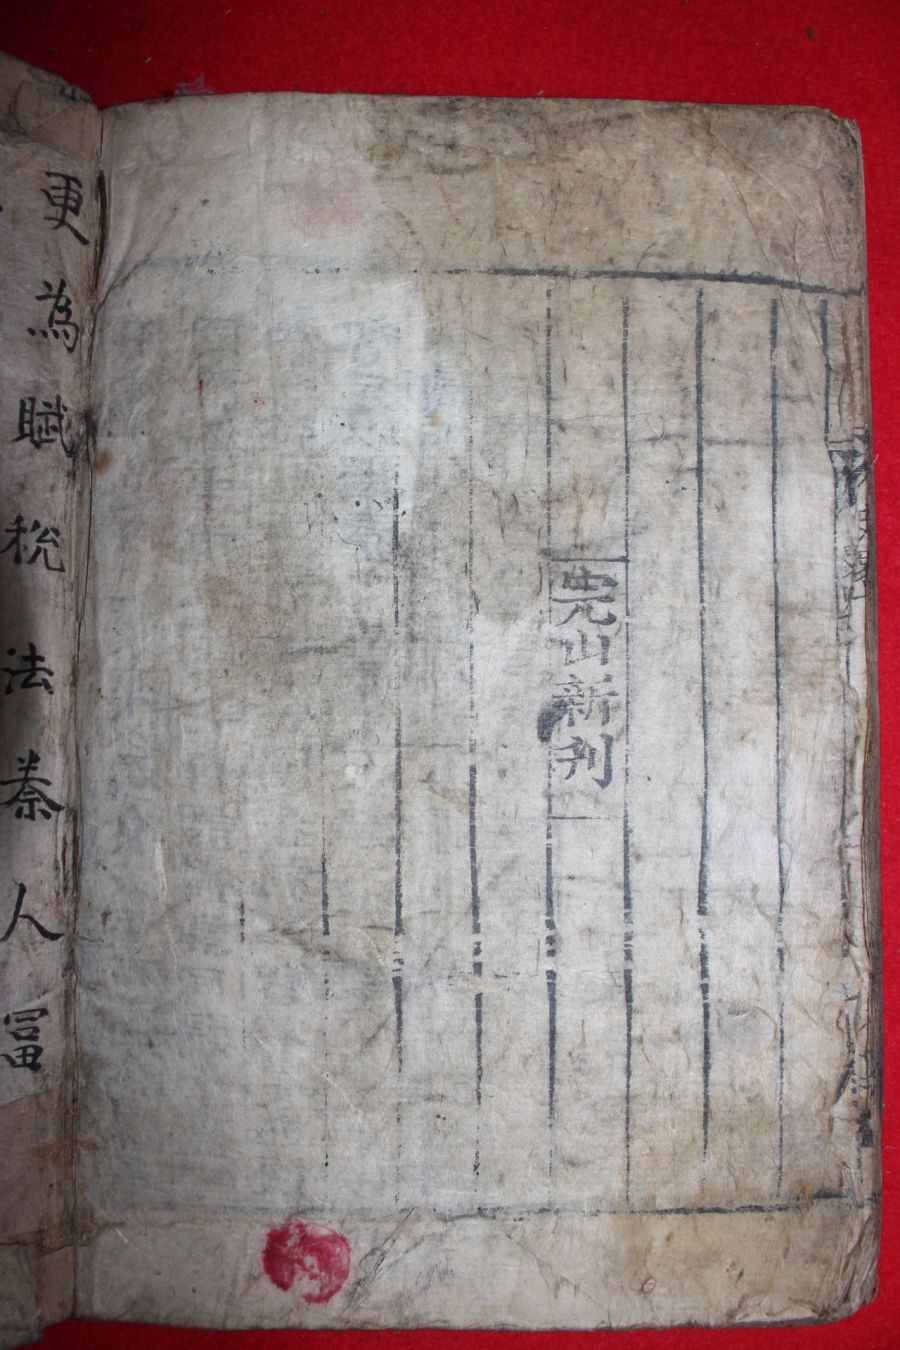 完山新刊
更為賦稅法秦人富